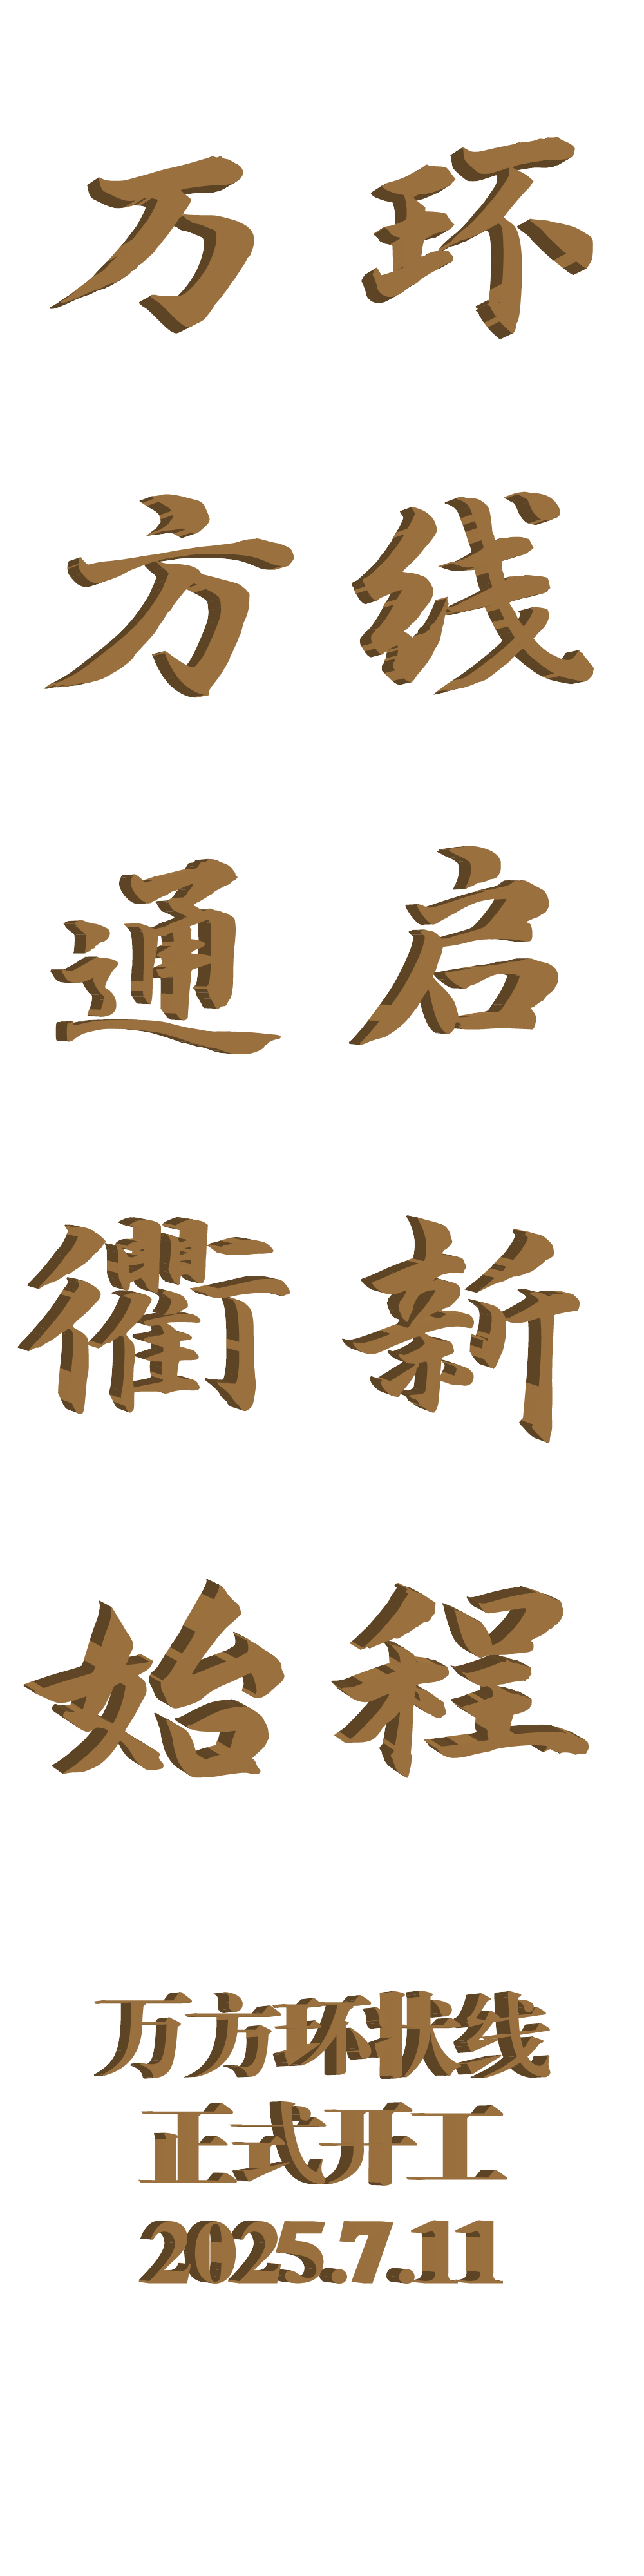 万方通衢始
环线启新程
万方环状线
正式开工
2025.7.11